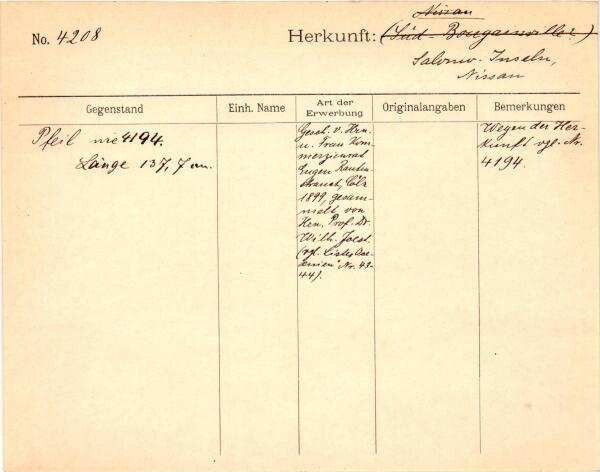 Nissan
No. 4208
Herkunft: (Süd-Bougainville)
Salomo-Inseln,
Nissan
Gegenstand
Einh. Name
Art der
Erwerbung
Originalangaben
Bemerkungen
Pfeil wie 4194.
Länge 137,7 cm.
Gesch. v. Hrn.
u. Frau Kom-
merzienrat
Eugen Rauten-
strauch, Cöln
1899, gesam-
melt von
Hrn. Prof. Dr.
Wilh. Joest.
(vgl. Liste Oze-
anien" Nr. 43-
44).
Wegen der Her-
kunft vgl. Nr.
4194.